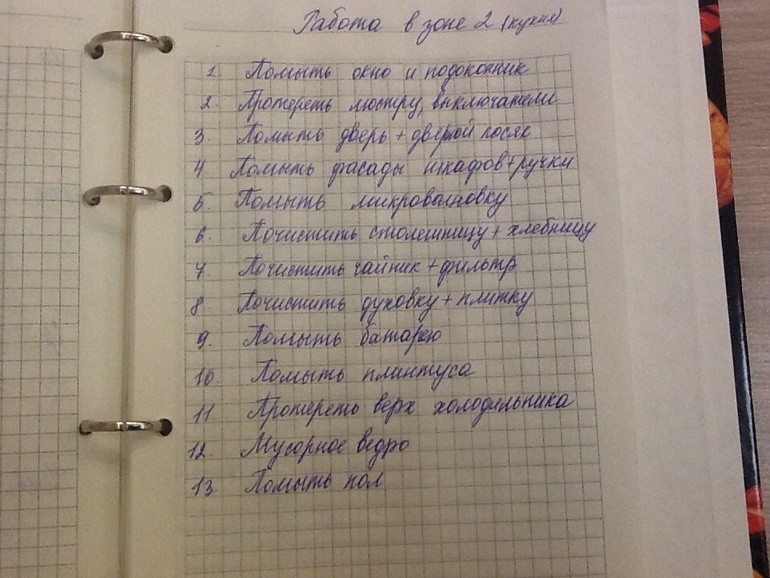 Работа в зоне 2 (кухня)
1. Помыть окно и подоконник
2 Протереть люстру, выключатели
3 Помыть дверь + дверой косяк
4 Помыть фасады шкафов+ручки
5. Помыть микроволновку
6 Почистить столешницу + хлебницу
7 Почистить чайник + фильтр
8 Почистить духовку + плитку
9. Помыть батарею
10 Помыть плинтуса
11 Протереть верх холодильника
12. Мусорное ведро
13 Помыть пол